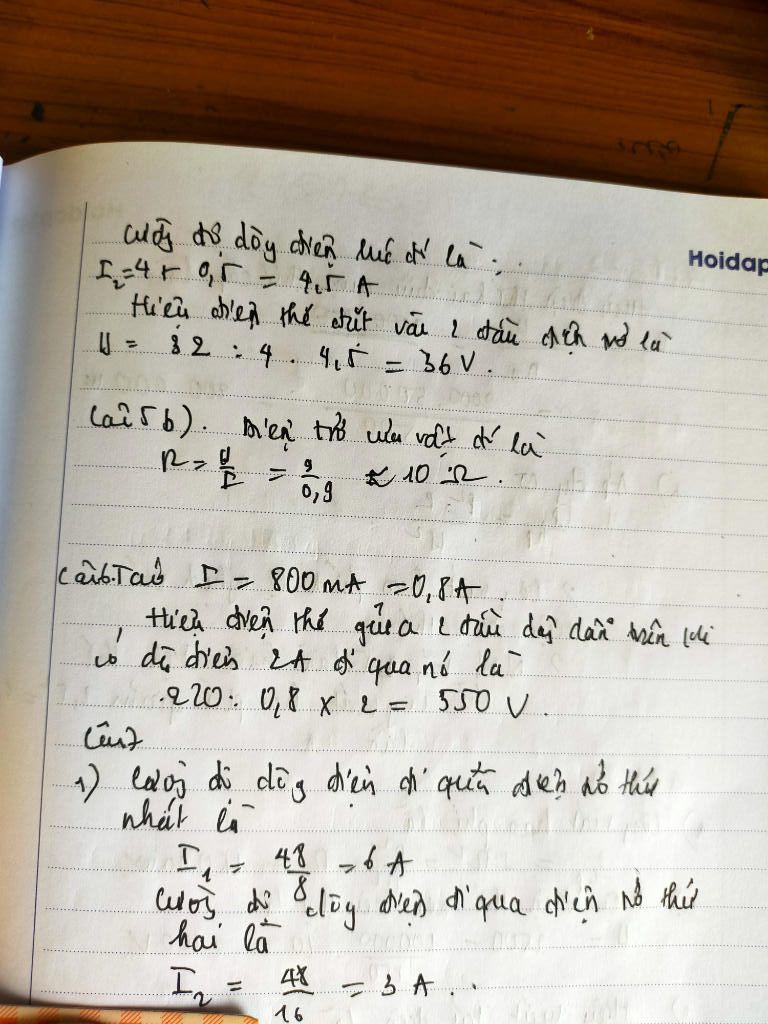 Cường độ dòng điện lúc đó là:
Hoidap
I₂=4 + 0,5 = 4,5 A
Hiệu điện thế đặt vào 2 đầu điện trở là
U = 32 : 4 . 4,5 = 36 V.
Câu 5 b). Điện trở của vật đó là
R = U/I = 9/0,9 = 10 Ω.
Câu6. Ta có I = 800 mA = 0,8 A.
Hiệu điện thế giữa 2 đầu dây dẫn trên khi
có dđ điện 2A đi qua nó là
220 : 0,8 x 2 = 550 V.
Câu7
1) Cường độ dòng điện đi qua điện trở thứ
nhất là
I₁ = 48/8 = 6 A
Cường độ dòng điện đi qua điện trở thứ
hai là
I₂ = 48/16 = 3 A.